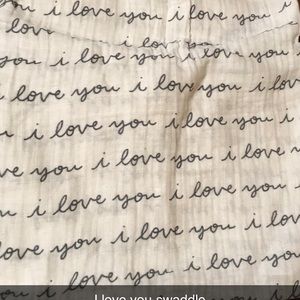 you i love you i love you i
love
i love you
you i love you i love you
love you i love you i love
you i love you i love you
i love you i love you i
love you i love you
i love you i love you
love you i love you i
you i love you i love
I love you swaddle